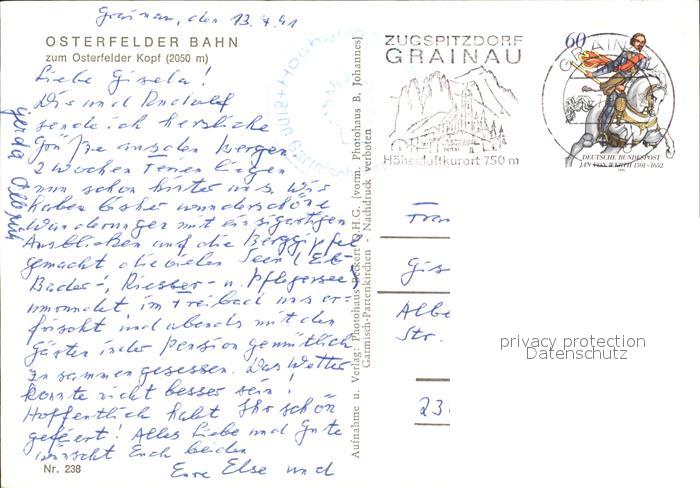 Grainau, den 13.7.91
OSTERFELDER BAHN
zum Osterfelder Kopf (2050 m)
Liebe Gisela!
Dir und Rudolf
sende ich herzliche
Grüße aus den Bergen.
2 Wochen Ferien liegen
nun schon hinter uns. Wir
haben bisher wunderschöne
Wanderungen mit einzigartigen
Ausblicken auf die Berggipfel
gemacht, die vielen Seen (Eib-
Bader-, Riesser- u. Pflegersee)
umrundet, im Freibad uns er-
frischt und abends mit den
Gästen in der Pension gemütlich
zusammengesessen. Das Wetter
konnte nicht besser sein!
Hoffentlich habt Ihr schön
gefeiert! Alles Liebe und Gute
wünscht Euch beiden
Eure Else und
Gerda
Nr. 238
Aufnahme u. Verlag: Photohaus Beckert A.H.G. (vorm. Photohaus B. Johannes)
Garmisch-Partenkirchen - Nachdruck verboten
ZUGSPITZDORF
GRAINAU
Höhenluftkurort 750 m
60
GRAINAU
DEUTSCHE BUNDESPOST
JAN VON WERTH 1591-1652
1991
Frau
Gis
Albe
Str.
23
privacy protection
Datenschutz